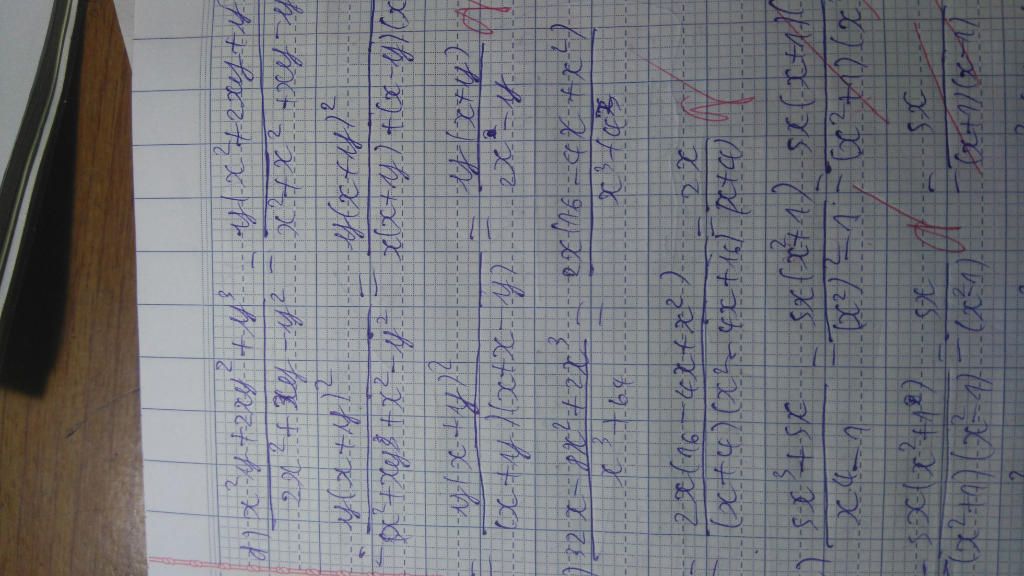 y) x²y+2xy²+y³ / 2x²+xy-y² = y(x²+2xy+y / x²+x²+xy-y
= y(x+y)² / (x²+xy)+x²-y² = y(x+y)² / x(x+y)+(x-y)(x
= y(x+y)² / (x+y)(x+x-y) = y(x+y) / 2x-y
) 32x-8x²+2x³ / x³+64 = 2x(16-4x+x²) / x³+4³
= 2x(16-4x+x²) / (x+4)(x²-4x+16) = 2x / (x+4)
) 5x³+5x / x4-1 = 5x(x²+1) / (x²)²-1 = 5x(x+1)( / (x²+1)(x
= 5x(x²+1) / (x²+1)(x²-1) = 5x / (x²-1) = 5x / (x+1)(x-1)